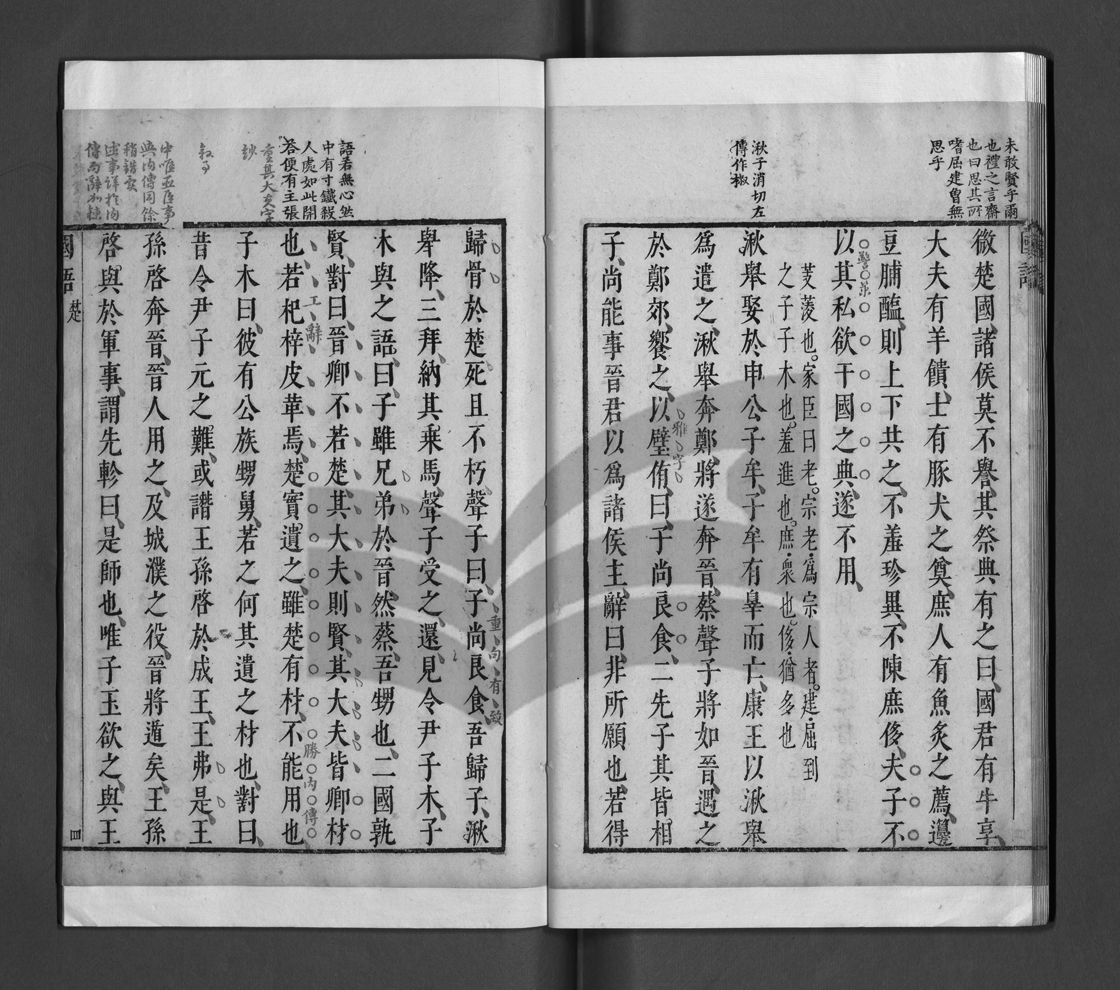 未敢賢乎爾
也禮之言齋
也曰思其所
嗜屈建曾無
思乎
湫子消切左
傳作椒
國語
微楚國諸侯莫不譽其祭典有之曰國君有牛享
大夫有羊饋士有豚犬之奠庶人有魚炙之薦籩
豆脯醢則上下共之不羞珍異不陳庶侈夫子不
以其私欲干國之典遂不用
芰蔆也家臣曰老宗老爲宗人者建屈到
之子子木也羞進也庶衆也侈猶多也
湫舉娶於申公子牟子牟有辠而亡康王以湫舉
爲遣之湫舉奔鄭將遂奔晉蔡聲子將如晉遇之
於鄭郊饗之以璧侑曰子尚良食二先子其皆相
雅字
子尚能事晉君以爲諸侯主辭曰非所願也若得
語若無心然
中有寸鐵殺
人處如此開
荅便有主張
重其大夫字
妙
叙事
中唯巫臣事
與內傳同餘
稍錯
歸骨於楚死且不朽聲子曰子尚良食吾歸子湫
重向有致
舉降三拜納其乘馬聲子受之還見令尹子木子
木與之語曰子雖兄弟於晉然蔡吾甥也二國孰
賢對曰晉卿不若楚其大夫則賢其大夫皆卿材
工辭
勝內傳
也若杞梓皮革焉楚實遺之雖楚有材不能用也
子木曰彼有公族甥舅若之何其遺之材也對曰
昔令尹子元之難或譖王孫啓於成王王弗是王
孫啓奔晉晉人用之及城濮之役晉將遁矣王孫
啓與於軍事謂先軫曰是師也唯子玉欲之與王
國語
楚
四